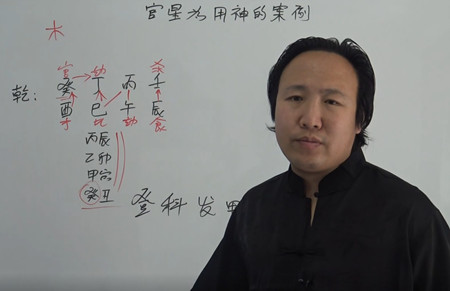 官星为用神的案例
官 劫 杀
乾: 癸 丁 丙 壬
酉 巳 午 辰
才 比 劫 食
丙辰
乙卯
甲寅
癸丑 登科发甲